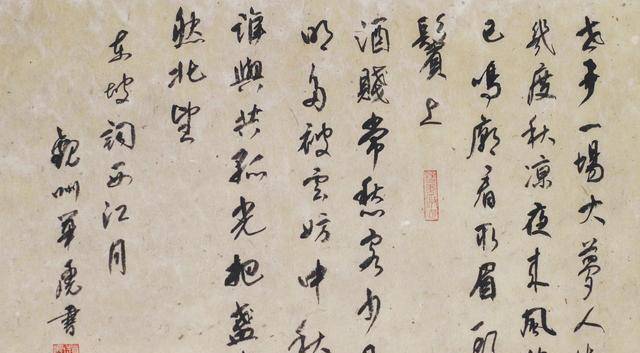 世事一場大夢人
幾度秋涼夜来風
已鳴廊看取眉頭
鬢上
酒賤常愁客少月
明多被云妨中秋
誰與共孤光把盞
然北望
東坡詞西江月
書